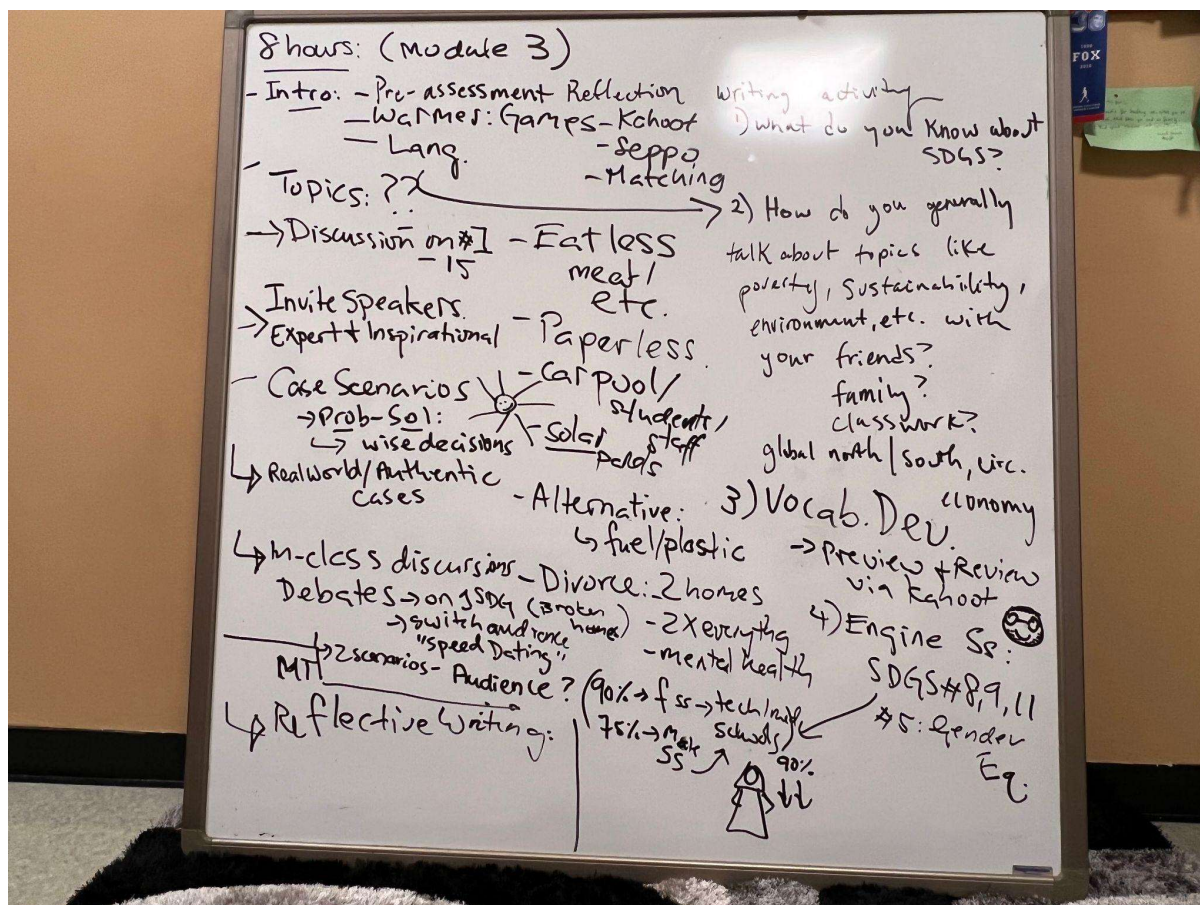 8 hours: (Module 3)
- Intro: - Pre-assessment Reflection writing activity
- Warmer: Games - Kahoot
- Seppo
- Matching
- Lang.
Topics: ??
→ Discussion on #1
- 15
Invite Speakers
→ Expert + Inspirational
- Case Scenarios
→ Prob-Sol:
↳ wise decisions
↳ Real World/Authentic
Cases
↳ In-class discussions
Debates → on 1 SDG
→ switch audience
"Speed Dating"
MT → 2 scenarios - Audience?
↳ Reflective Writing:
- Eat less
meat/
etc.
- Paperless
- Car pool/
students/
staff
- Solar
- Alternative:
↳ fuel/plastic
- Divorce: 2 homes
(Broken
homes)
- 2X everythg
- mental health
1) What do you know about
SDGS?
2) How do you generally
talk about topics like
poverty, sustainability,
environment, etc. with
your friends?
family?
classwork?
global north/south, circ.
economy
3) Vocab. Dev.
→ Preview + Review
via Kahoot
4) Engine Ss:
SDGS #8,9,11
#5: Gender
Eq.
(90% → f ss → tech/
schools)
75% →
SS
90%
FOX